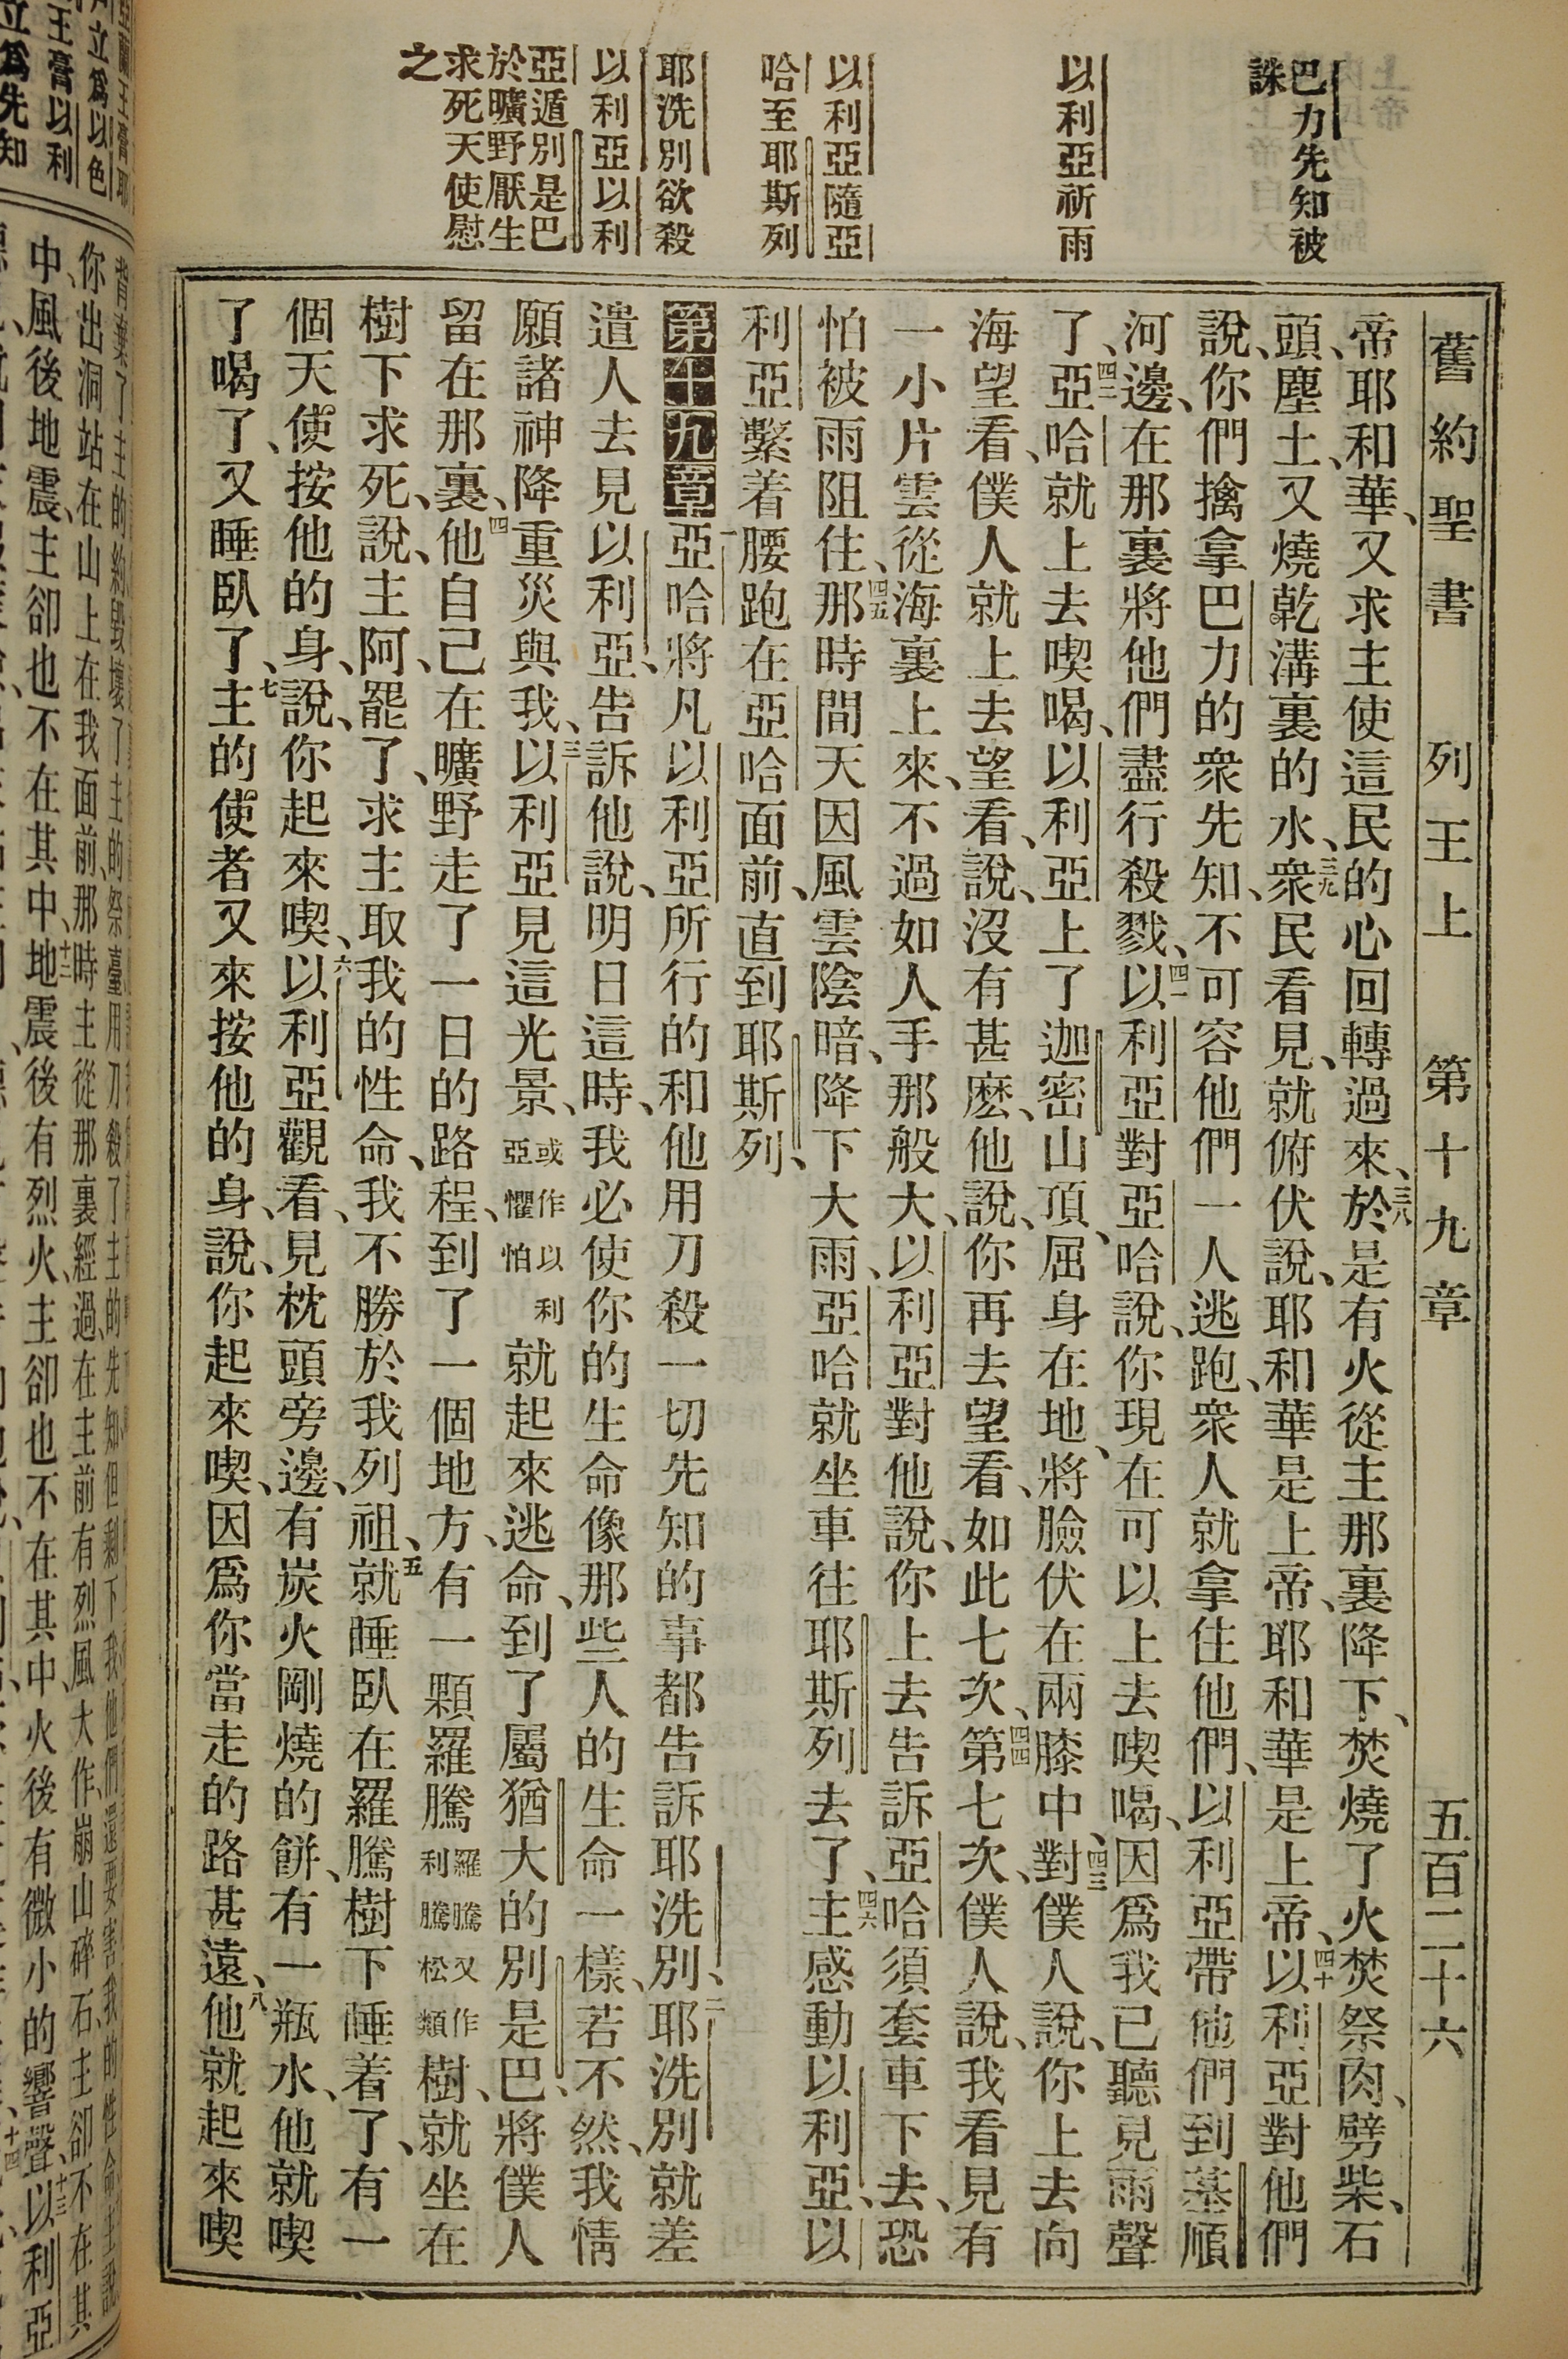 巴力先知被
誅
以利亞祈雨
以利亞隨亞
哈至耶斯列
耶洗別欲殺
以利亞以利
亞遁別是巴
於曠野厭生
求死天使慰
之
舊約聖書 列王上 第十九章 五百二十六
帝耶和華、又求主使這民的心回轉過來、三八於是有火從主那裏降下、焚燒了火焚祭肉、劈柴、石
頭、塵土、又燒乾溝裏的水、三九衆民看見、就俯伏說、耶和華是上帝、耶和華是上帝、四十以利亞對他們
說、你們擒拿巴力的衆先知、不可容他們一人逃跑、衆人就拿住他們、以利亞帶他們到基順
河邊、在那裏將他們盡行殺戮、四一以利亞對亞哈說、你現在可以上去喫喝、因爲我已聽見雨聲
了、四二亞哈就上去喫喝、以利亞上了迦密山頂、屈身在地、將臉伏在兩膝中、四三對僕人說、你上去向
海望看、僕人就上去望看、說、沒有甚麽、他說、你再去望看、如此七次、四四第七次、僕人說、我看見有
一小片雲從海裏上來、不過如人手那般大、以利亞對他說、你上去告訴亞哈須套車下去、恐
怕被雨阻住、四五那時間天因風雲陰暗、降下大雨、亞哈就坐車往耶斯列去了、四六主感動以利亞、以
利亞繫着腰跑在亞哈面前、直到耶斯列、
第十九章 一亞哈將凡以利亞所行的和他用刀殺一切先知的事都告訴耶洗別、二耶洗別就差
遣人去見以利亞、告訴他說、明日這時、我必使你的生命像那些人的生命一樣、若不然、我情
願諸神降重災與我、三以利亞見這光景、或作以利亞懼怕就起來逃命、到了屬猶大的別是巴、將僕人
留在那裏、四他自己在曠野走了一日的路程、到了一個地方、有一顆羅騰羅騰又作利騰松類樹、就坐在
樹下求死、說、主阿、罷了、求主取我的性命、我不勝於我列祖、五就睡臥在羅騰樹下睡着了、有一
個天使按他的身、說、你起來喫、六以利亞觀看、見枕頭旁邊、有炭火剛燒的餅、有一瓶水、他就喫
了喝了、又睡臥了、七主的使者又來按他的身、說、你起來喫、因爲你當走的路甚遠、八他就起來喫
你出洞站在山上在我面前、那時主從那裏經過、在主前有烈風大作、崩山碎石、主卻不在其
中、風後地震、主卻也不在其中、十二地震後有烈火、主卻也不在其中、火後有微小的響聲、十三以利亞